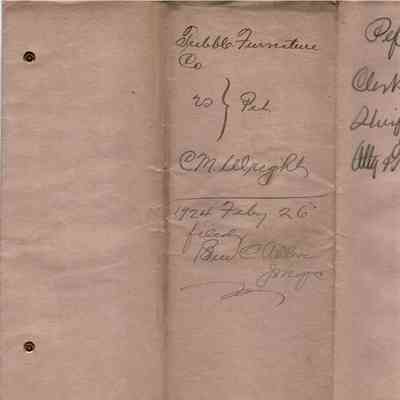 Tribble Furniture
Co
vs } Pet
C. M. Wright
1924 Feby 26
filed
Ben C Allen
Clerk
Atty